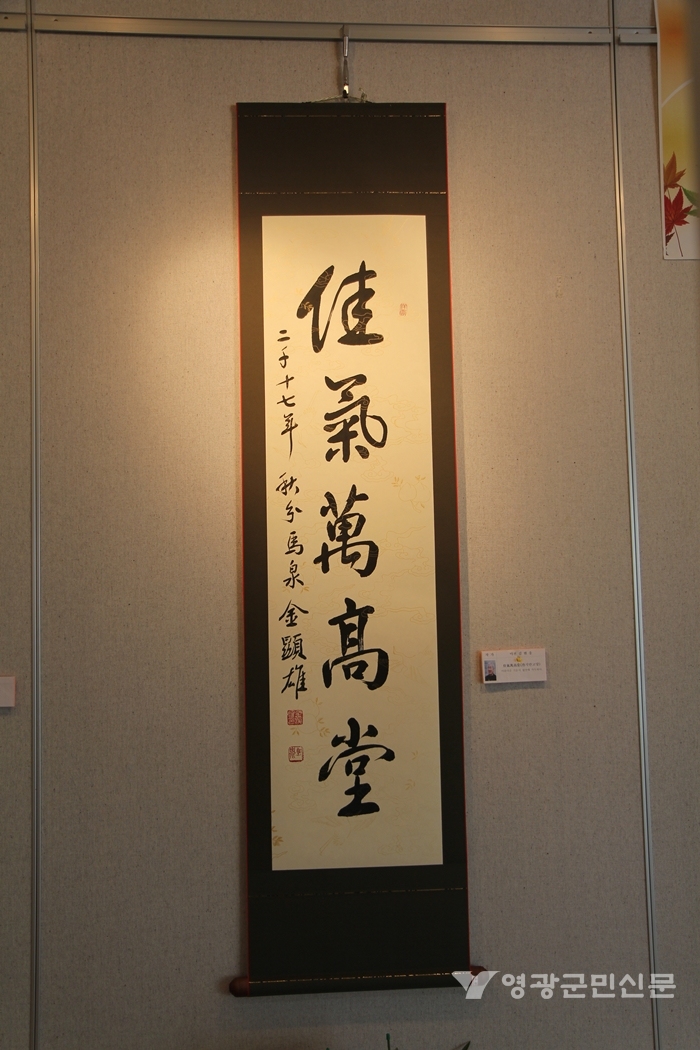 佳氣萬高堂
二千十七年 秋分 馬泉 金顯雄
영광군민신문